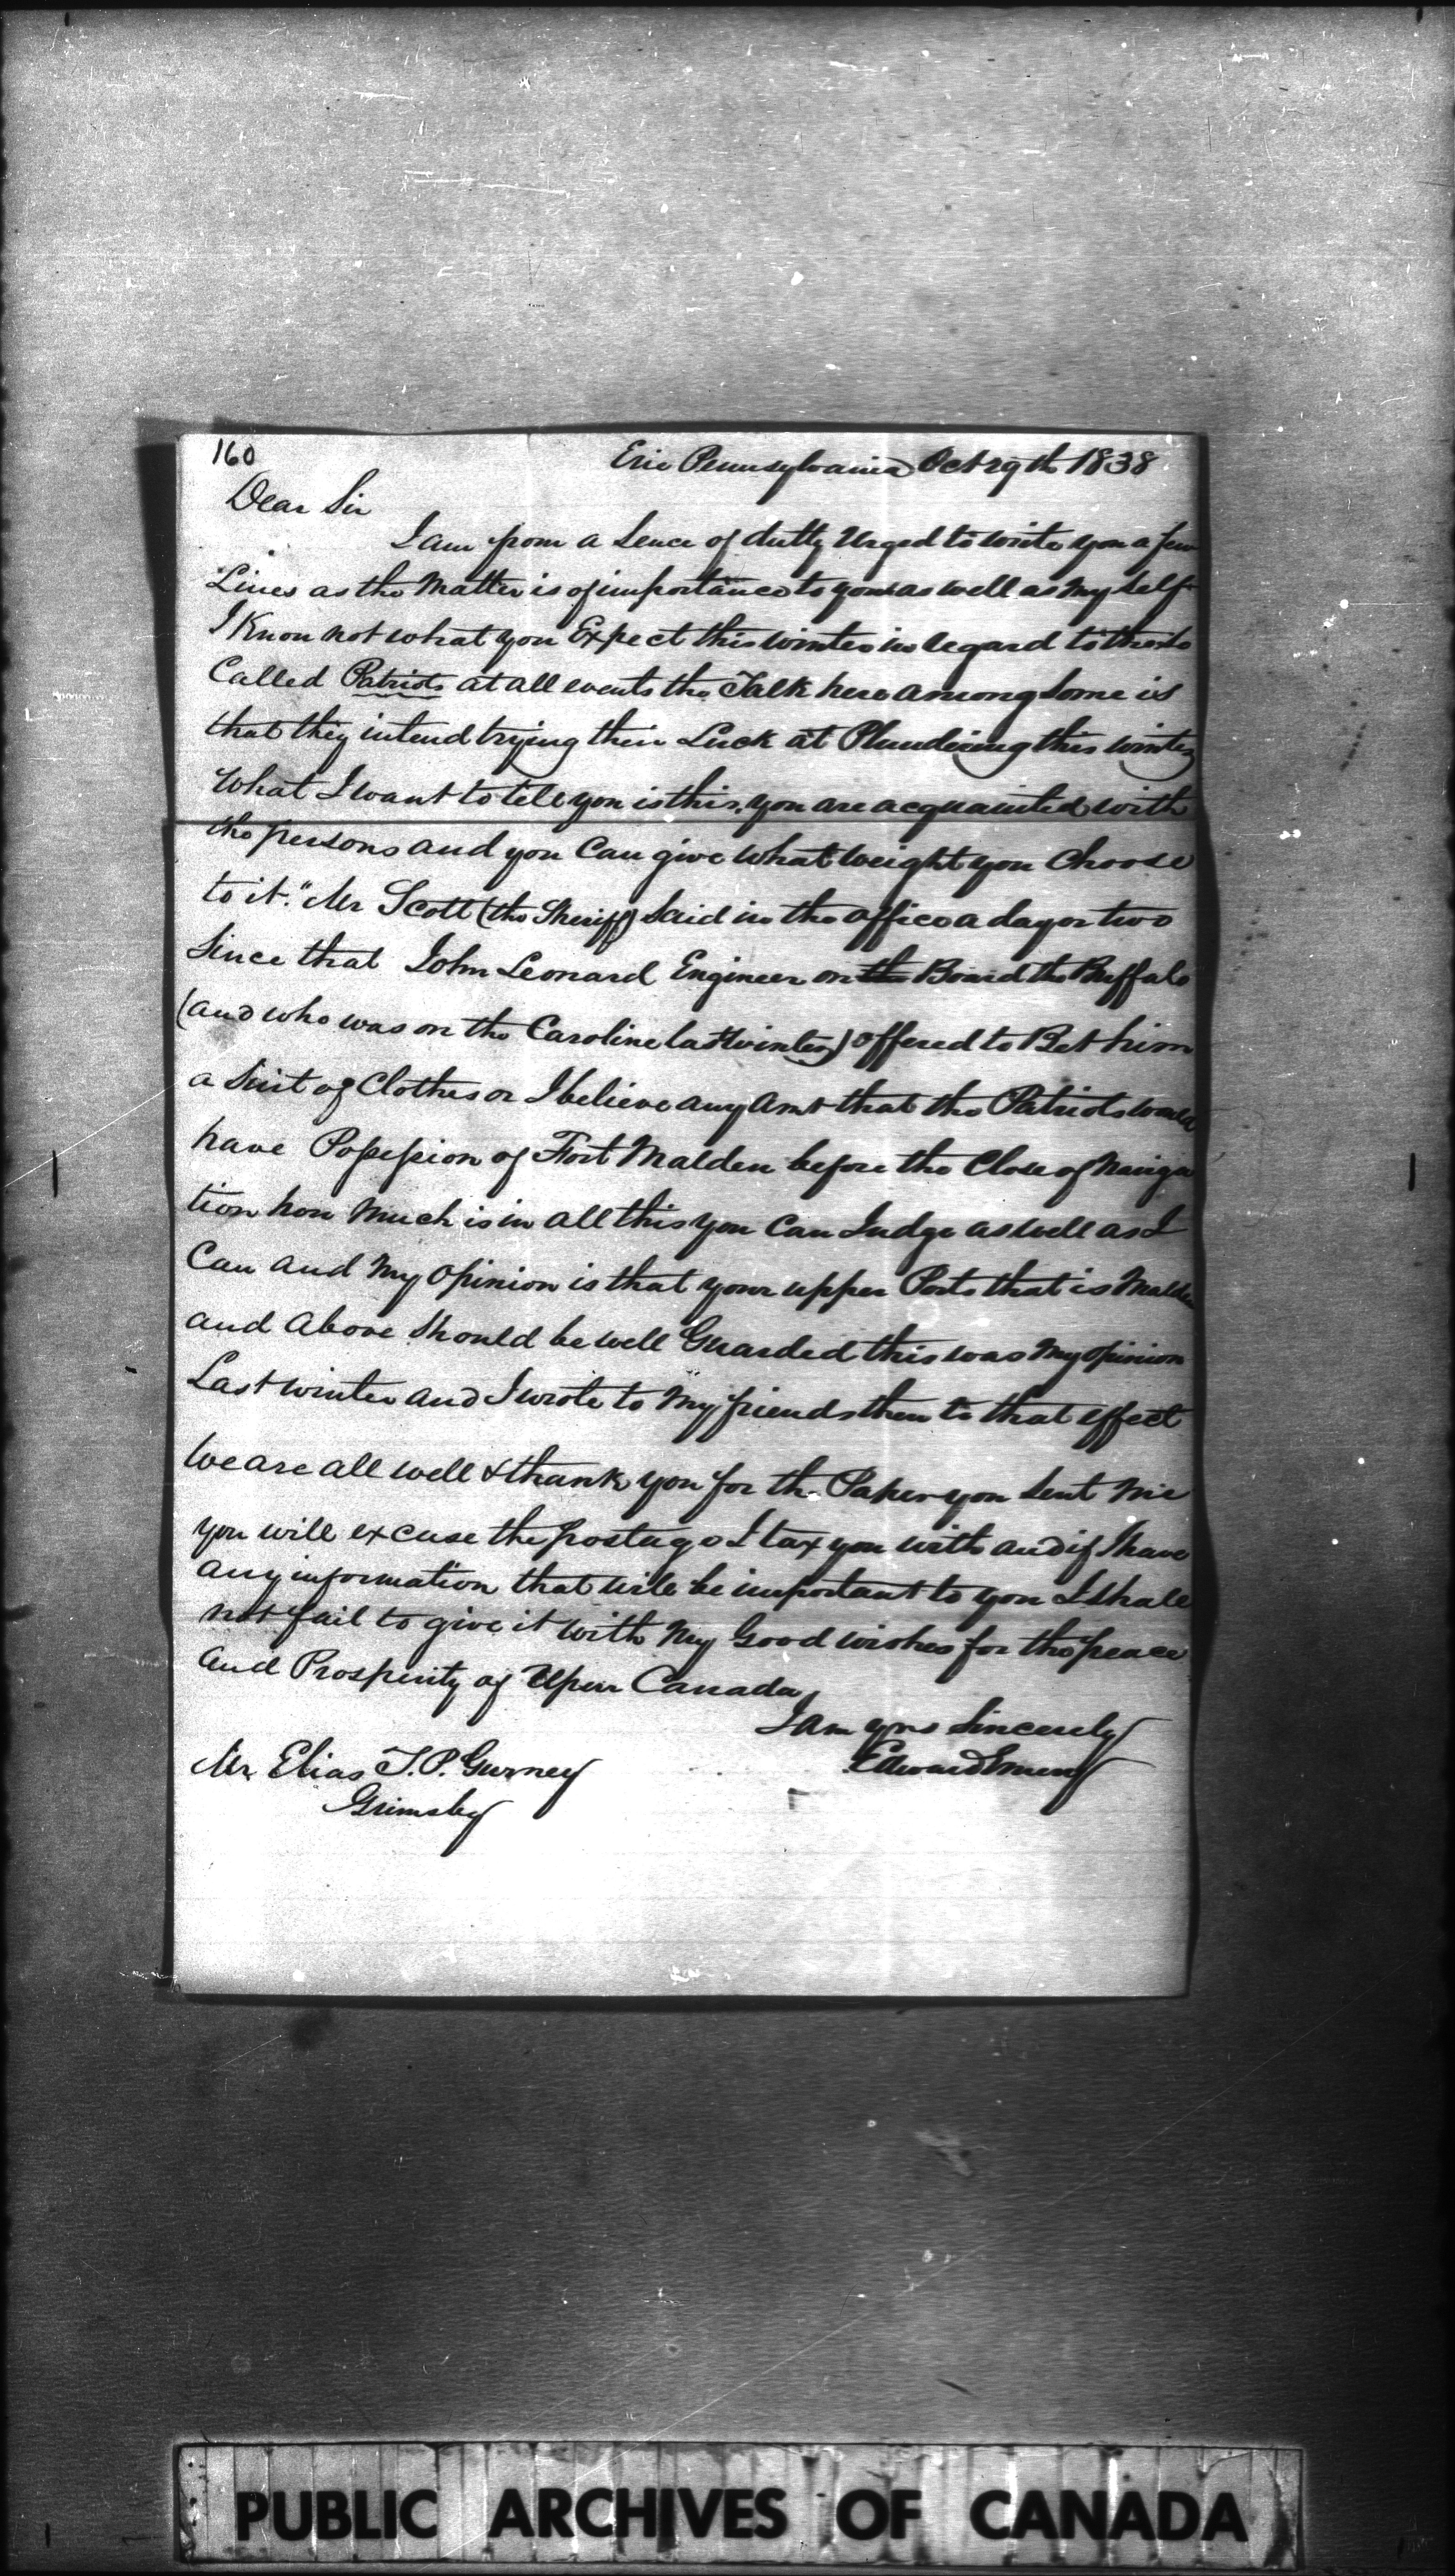 160
Erie Pennsylvania Oct 29th 1838
Dear Sir
I am from a Sence of dutty Urged to write you a few
Lines as the Matter is of importance to you as well as My Self
I Know not what you Expect this winter in regard to the so
Called Patriots at all events the Talk here among some is
that they intend trying their Luck at Plundering this winter
What I want to tell you is this, you are acquainted with
the persons and you Can give what weight you Choose
to it." Mr Scott (the Sheriff) Said in the office a day or two
Since that John Leonard Engineer on the Board the Buffalo
(and who was on the Caroline last winter) offered to Bet him
a Suit of Clothes or I believe any Amt that the Patriots would
have Possession of Fort Malden before the Close of Naviga
tion how Much is in all this you Can Judge as well as I
Can and My Opinion is that your upper Posts that is Malden
and Above Should be well Guarded this was My opinion
Last winter and I wrote to My friends then to that effect
We are all well & thank you for the Paper you Sent Me
you will excuse the postage I tax you with and if I have
any information that will be important to you I Shall
not fail to give it with My Good wishes for the peace
and Prosperity of Uper Canada,
I am yrs Sincerely
Edward
Mr Elias T. P. Gurney
Grimsby
PUBLIC ARCHIVES OF CANADA